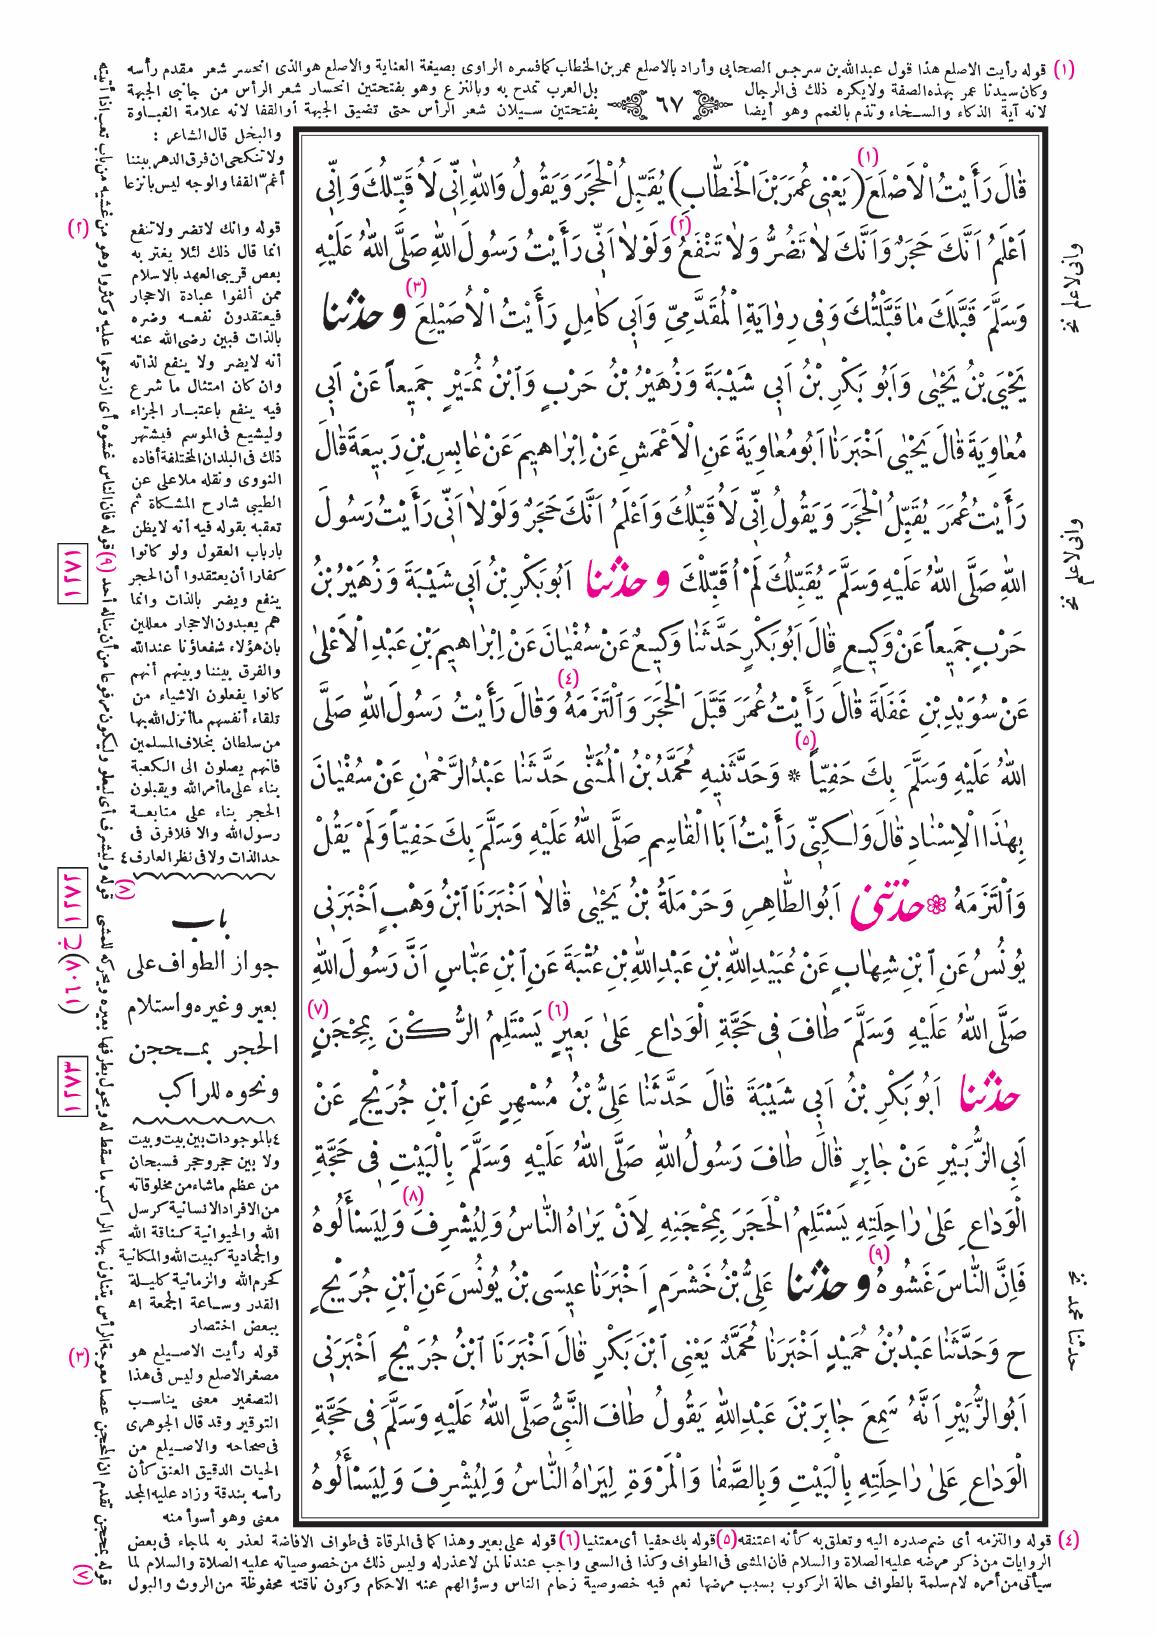 (١) قوله رأيت الاصلع هذا قول عبدالله بن سرجس الصحابى وأراد بالاصلع عمر بن الخطاب كما فسره الراوى بصيغة العناية والاصلع هو الذى انحسر شعر مقدم رأسه
وكان سيدنا عمر بهذه الصفة ولا يكره ذلك فى الرجال بل العرب تمدح به وبالنزع وهو بفتحتين انحسار شعر الرأس من جانبى الجبهة
لانه آية الذكاء والسخاء وتذم بالغمم وهو أيضا بفتحتين سيلان شعر الرأس حتى تضيق الجبهة أو القفا لانه علامة الغباوة
٦٧
والبخل قال الشاعر :
ولا تنكحى ان فرق الدهر بيننا
أغم القفا والوجه ليس بانزعا
قَالَ رَأَيْتُ الْأَصْلَعَ (١) (يَعْنِى عُمَرَ بْنَ الْخَطَّابِ) يُقَبِّلُ الْحَجَرَ وَيَقُولُ وَاللهِ إِنِّى لَأُقَبِّلُكَ وَإِنِّى
أَعْلَمُ أَنَّكَ حَجَرٌ وَأَنَّكَ لَا تَضُرُّ وَلَا تَنْفَعُ (٢) وَلَوْلَا أَنِّى رَأَيْتُ رَسُولَ اللهِ صَلَّى اللهُ عَلَيْهِ
وَسَلَّمَ قَبَّلَكَ مَا قَبَّلْتُكَ وَفِى رِوَايَةِ الْمُقَدَّمِىِّ وَأَبِى كَامِلٍ رَأَيْتُ الْأُصَيْلِعَ (٣) وحدثنا
يَحْيَى بْنُ يَحْيَى وَأَبُو بَكْرِ بْنُ أَبِى شَيْبَةَ وَزُهَيْرُ بْنُ حَرْبٍ وَابْنُ نُمَيْرٍ جَمِيعاً عَنْ أَبِى
مُعَاوِيَةَ قَالَ يَحْيَى أَخْبَرَنَا أَبُو مُعَاوِيَةَ عَنِ الْأَعْمَشِ عَنْ إِبْرَاهِيمَ عَنْ عَابِسِ بْنِ رَبِيعَةَ قَالَ
رَأَيْتُ عُمَرَ يُقَبِّلُ الْحَجَرَ وَيَقُولُ إِنِّى لَأُقَبِّلُكَ وَأَعْلَمُ أَنَّكَ حَجَرٌ وَلَوْلَا أَنِّى رَأَيْتُ رَسُولَ
اللهِ صَلَّى اللهُ عَلَيْهِ وَسَلَّمَ يُقَبِّلُكَ لَمْ أُقَبِّلْكَ وحدثنا أَبُو بَكْرِ بْنُ أَبِى شَيْبَةَ وَزُهَيْرُ بْنُ
حَرْبٍ جَمِيعاً عَنْ وَكِيعٍ قَالَ أَبُو بَكْرٍ حَدَّثَنَا وَكِيعٌ عَنْ سُفْيَانَ عَنْ إِبْرَاهِيمَ بْنِ عَبْدِ الْأَعْلَى
عَنْ سُوَيْدِ بْنِ غَفَلَةَ قَالَ رَأَيْتُ عُمَرَ قَبَّلَ الْحَجَرَ وَالْتَزَمَهُ (٤) وَقَالَ رَأَيْتُ رَسُولَ اللهِ صَلَّى
اللهُ عَلَيْهِ وَسَلَّمَ بِكَ حَفِيّاً (٥) * وَحَدَّثَنِيهِ مُحَمَّدُ بْنُ الْمُثَنَّى حَدَّثَنَا عَبْدُ الرَّحْمٰنِ عَنْ سُفْيَانَ
بِهٰذَا الْإِسْنَادِ قَالَ وَلٰكِنِّى رَأَيْتُ أَبَا الْقَاسِمِ صَلَّى اللهُ عَلَيْهِ وَسَلَّمَ بِكَ حَفِيّاً وَلَمْ يَقُلْ
وَالْتَزَمَهُ حدثنى أَبُو الطَّاهِرِ وَحَرْمَلَةُ بْنُ يَحْيَى قَالَا أَخْبَرَنَا ابْنُ وَهْبٍ أَخْبَرَنِى
يُونُسُ عَنِ ابْنِ شِهَابٍ عَنْ عُبَيْدِ اللهِ بْنِ عَبْدِ اللهِ بْنِ عُتْبَةَ عَنِ ابْنِ عَبَّاسٍ أَنَّ رَسُولَ اللهِ
صَلَّى اللهُ عَلَيْهِ وَسَلَّمَ طَافَ فِى حَجَّةِ الْوَدَاعِ عَلَى بَعِيرٍ (٦) يَسْتَلِمُ الرُّكْنَ بِمِحْجَنٍ (٧)
حدثنا أَبُو بَكْرِ بْنُ أَبِى شَيْبَةَ قَالَ حَدَّثَنَا عَلِىُّ بْنُ مُسْهِرٍ عَنِ ابْنِ جُرَيْجٍ عَنْ
أَبِى الزُّبَيْرِ عَنْ جَابِرٍ قَالَ طَافَ رَسُولُ اللهِ صَلَّى اللهُ عَلَيْهِ وَسَلَّمَ بِالْبَيْتِ فِى حَجَّةِ
الْوَدَاعِ عَلَى رَاحِلَتِهِ يَسْتَلِمُ الْحَجَرَ بِمِحْجَنِهِ لِأَنْ يَرَاهُ النَّاسُ وَلِيُشْرِفَ (٨) وَلِيَسْأَلُوهُ
فَإِنَّ النَّاسَ غَشُوهُ (٩) وحدثنا عَلِىُّ بْنُ خَشْرَمٍ أَخْبَرَنَا عِيسَى بْنُ يُونُسَ عَنِ ابْنِ جُرَيْجٍ
ح وَحَدَّثَنَا عَبْدُ بْنُ حُمَيْدٍ أَخْبَرَنَا مُحَمَّدٌ يَعْنِى ابْنَ بَكْرٍ قَالَ أَخْبَرَنَا ابْنُ جُرَيْجٍ أَخْبَرَنِى
أَبُو الزُّبَيْرِ أَنَّهُ سَمِعَ جَابِرَ بْنَ عَبْدِ اللهِ يَقُولُ طَافَ النَّبِىُّ صَلَّى اللهُ عَلَيْهِ وَسَلَّمَ فِى حَجَّةِ
الْوَدَاعِ عَلَى رَاحِلَتِهِ بِالْبَيْتِ وَبِالصَّفَا وَالْمَرْوَةِ لِيَرَاهُ النَّاسُ وَلِيُشْرِفَ وَلِيَسْأَلُوهُ
(٢) قوله وانك لاتضر ولاتنفع
انما قال ذلك لئلا يغتر به
بعض قريبى العهد بالاسلام
ممن ألفوا عبادة الاحجار
فيعتقدون نفعه وضره
بالذات فبين رضى الله عنه
أنه لايضر ولا ينفع لذاته
وان كان امتثال ما شرع
فيه ينفع باعتبار الجزاء
وليشيع فى الموسم فيشتهر
ذلك فى البلدان المختلفة أفاده
النووى ونقله ملا على عن
الطيبى شارح المشكاة ثم
تعقبه بقوله فيه أنه لايظن
بارباب العقول ولو كانوا
كفارا أن يعتقدوا أن الحجر
ينفع ويضر بالذات وانما
هم يعبدون الاحجار معللين
بان هؤلاء شفعاؤنا عند الله
والفرق بيننا وبينهم أنهم
كانوا يفعلون الاشياء من
تلقاء أنفسهم ما أنزل الله بها
من سلطان بخلاف المسلمين
فانهم يصلون الى الكعبة
بناء على ما أمر الله ويقبلون
الحجر بناء على متابعة
رسول الله والا فلا فرق فى
حد الذات ولا فى نظر العارف ٤
باب
جواز الطواف على
بعير وغيره واستلام
الحجر بمحجن
ونحوه للراكب
٤ بالموجودات بين بيت وبيت
ولا بين حجر وحجر فسبحان
من عظم ماشاء من مخلوقاته
من الافراد الانسانية كرسل
الله والحيوانية كناقة الله
والجمادية كبيت الله والمكانية
كحرم الله والزمانية كليلة
القدر وساعة الجمعة اه
ببعض اختصار
(٣) قوله رأيت الاصيلع هو
مصغر الاصلع وليس فى هذا
التصغير معنى يناسب
التوقير وقد قال الجوهرى
فى صحاحه والاصيلع من
الحيات الدقيق العنق كأن
رأسه بندقة وزاد عليه المجد
معنى وهو أسوأ منه
(٧) قوله بمحجن تقدم ان المحجن عصا معوجة الرأس يتناول بها الراكب ما سقط له ويحول بطرفها بعيره ويحركه للمشى (٨) قوله وليشرف أى ليعلو وليكون مرفوعا من أن يناله أحد (٩) قوله فان الناس غشوه أى ازدحموا عليه وكثروا وهو من غشيه من باب تعب اذا أتيته
١٢٧١
١٢٧٢
(١٦٠٧) خ
١٢٧٣
نخ أعلم لانك وإنى
نخ أعلم لانك وإنى
حدثنا محمد نخ
(٤) قوله والتزمه أى ضم صدره اليه وتعلق به كأنه اعتنقه (٥) قوله بك حفيا أى معتنيا (٦) قوله على بعير وهذا كما فى المرقاة فى طواف الافاضة لعذر به لما جاء فى بعض
الروايات من ذكر مرضه عليه الصلاة والسلام فان المشى فى الطواف وكذا فى السعى واجب عندنا لمن لا عذر له وليس ذلك من خصوصياته عليه الصلاة والسلام لما
سيأتى من أمره لام سلمة بالطواف حالة الركوب بسبب مرضها نعم فيه خصوصية زحام الناس وسؤالهم عنه الاحكام وكون ناقته محفوظة من الروث والبول